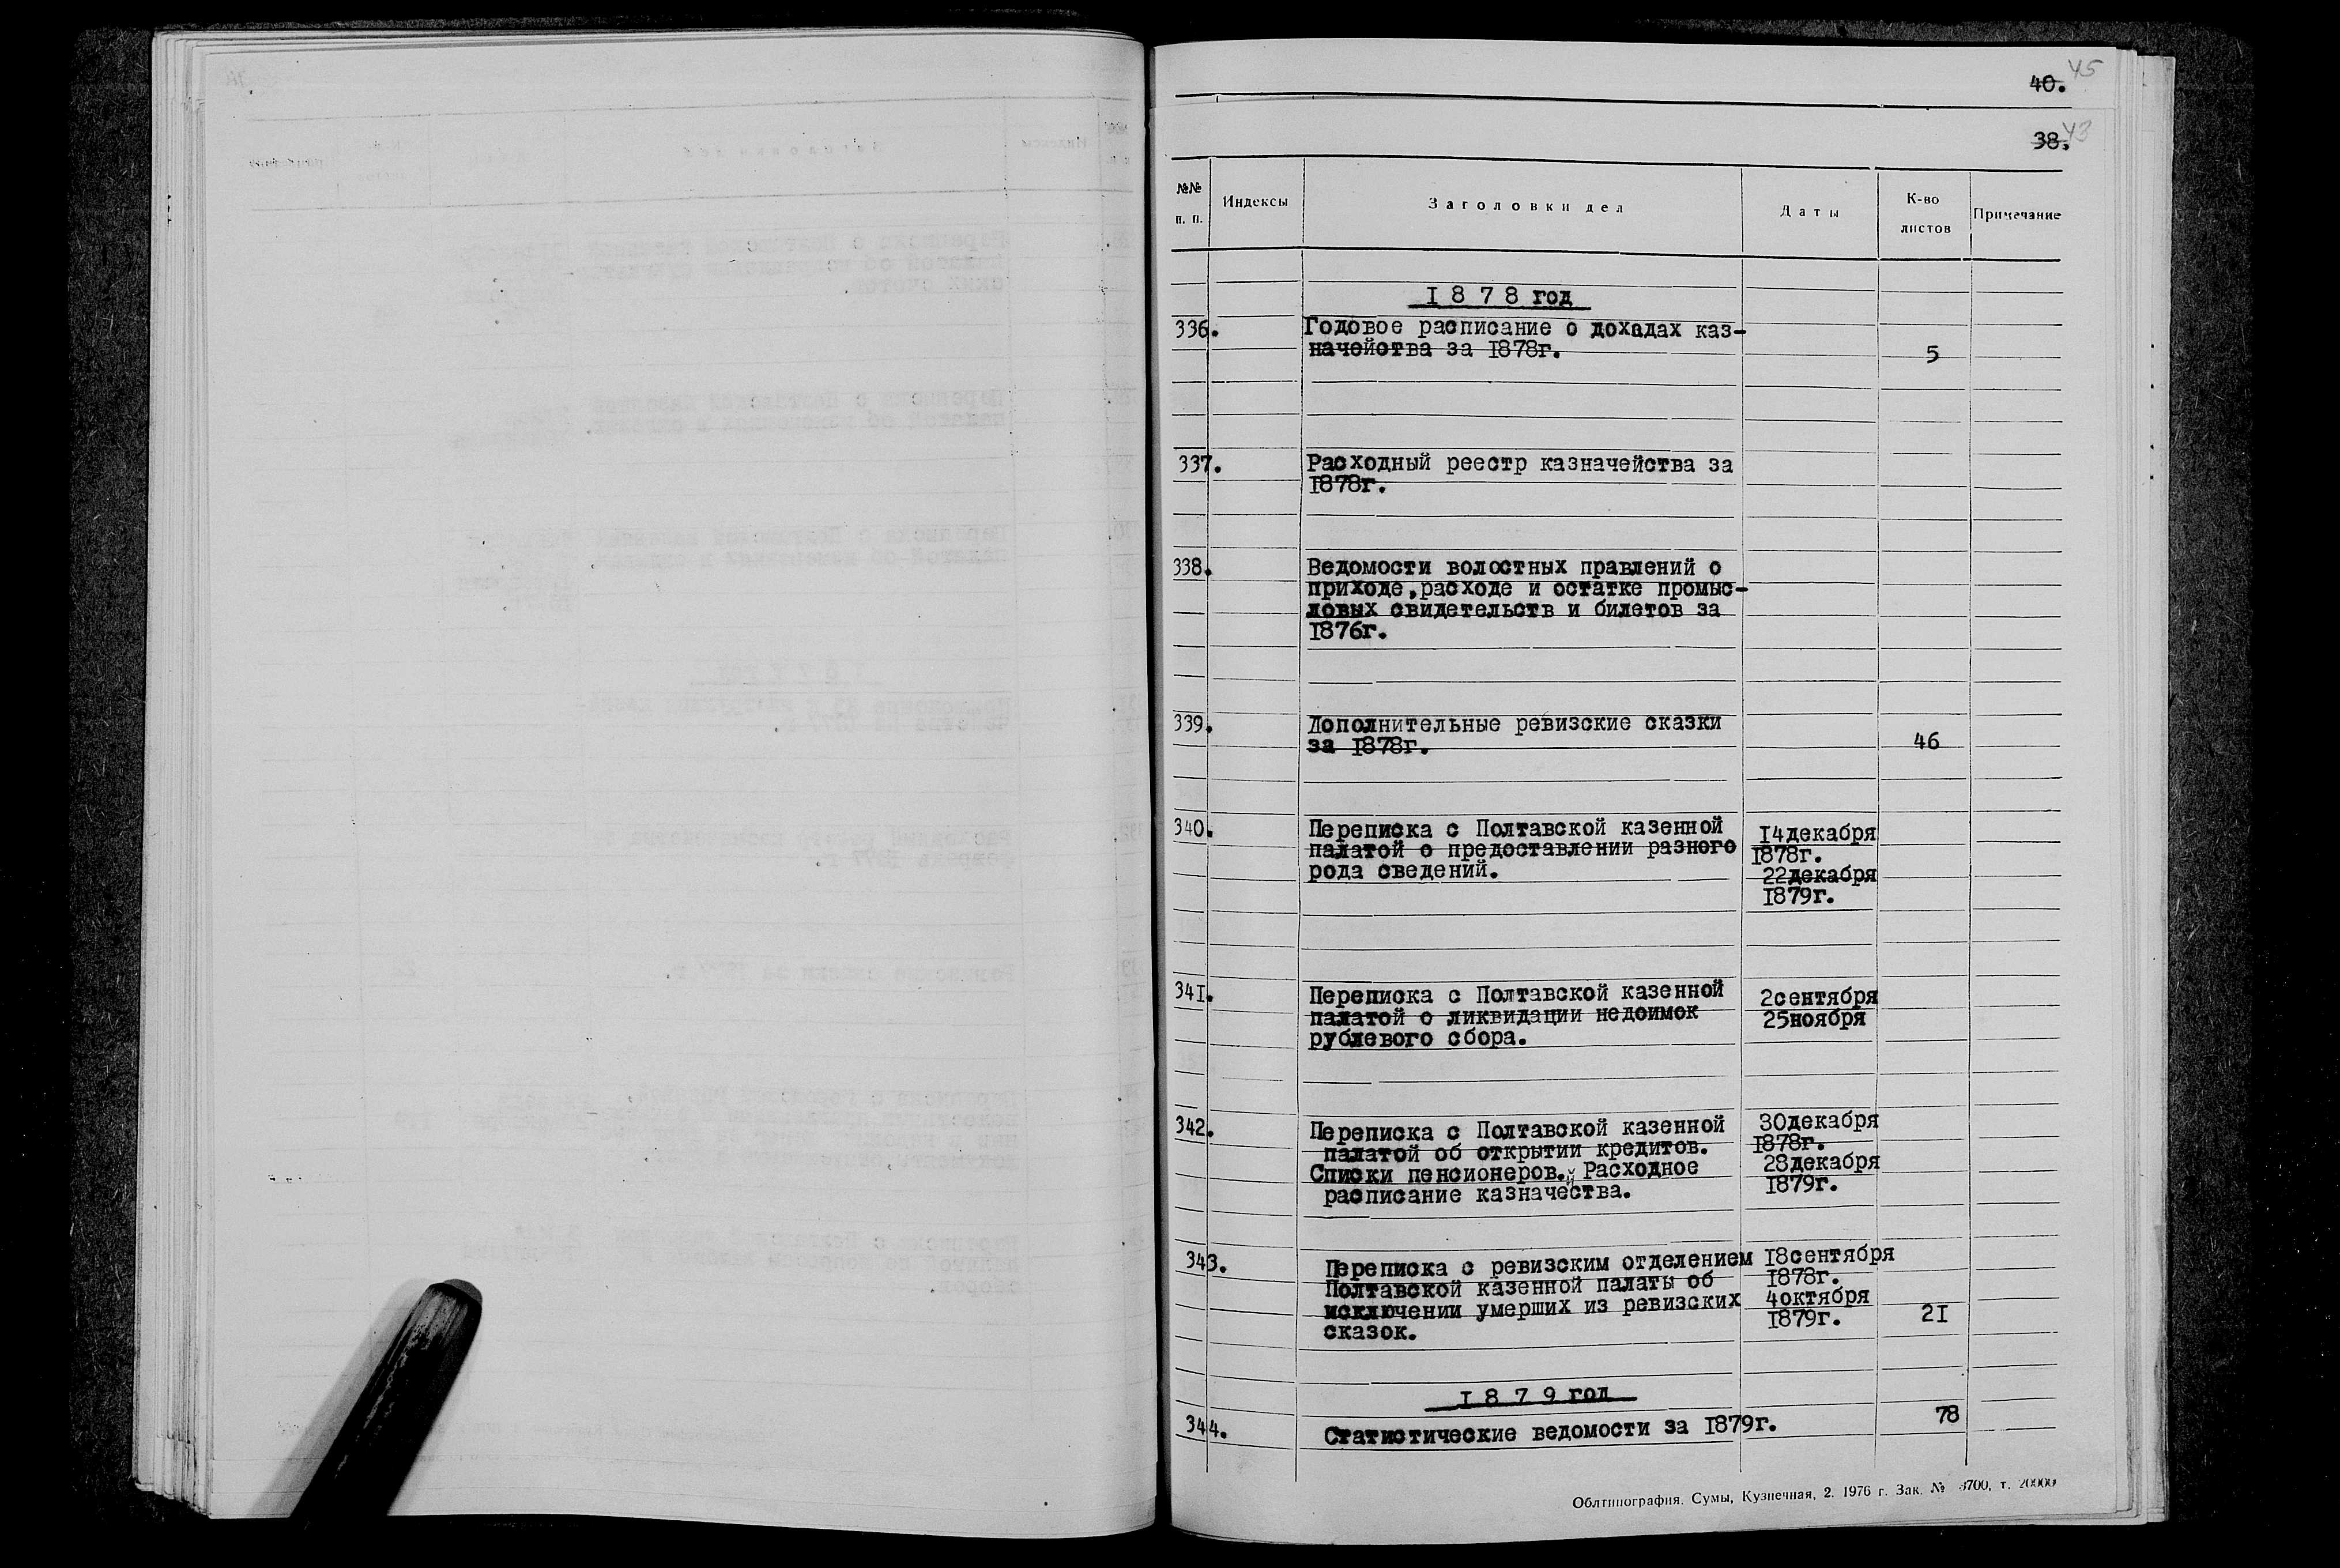 40. 45
38. 43
№№ п. п.
Индексы
Заголовки дел
Даты
К-во листов
Примечание
1878 год
336. Годовое расписание о доходах каз-
начейства за 1878г. 5
337. Расходный реестр казначейства за
1878г.
338. Ведомости волостных правлений о
приходе, расходе и остатке промыс-
ловых свидетельств и билетов за
1876г.
339. Дополнительные ревизские сказки
за 1878г. 46
340. Переписка с Полтавской казенной 14декабря
палатой о предоставлении разного 1878г.
рода сведений. 22декабря
1879г.
341. Переписка с Полтавской казенной 2сентября
палатой о ликвидации недоимок 25ноября
рублевого сбора.
342. Переписка с Полтавской казенной 30декабря
палатой об открытии кредитов. 1878г.
Списки пенсионеров. и Расходное 28декабря
расписание казначества. 1879г.
343. Переписка с ревизским отделением 18сентября
Полтавской казенной палаты об 1878г.
исключении умерших из ревизских 4октября
сказок. 1879г. 21
1879 год
344. Статистические ведомости за 1879г. 78
Облтипография. Сумы, Кузнечная, 2. 1976 г. Зак. № 3700, т. 20000